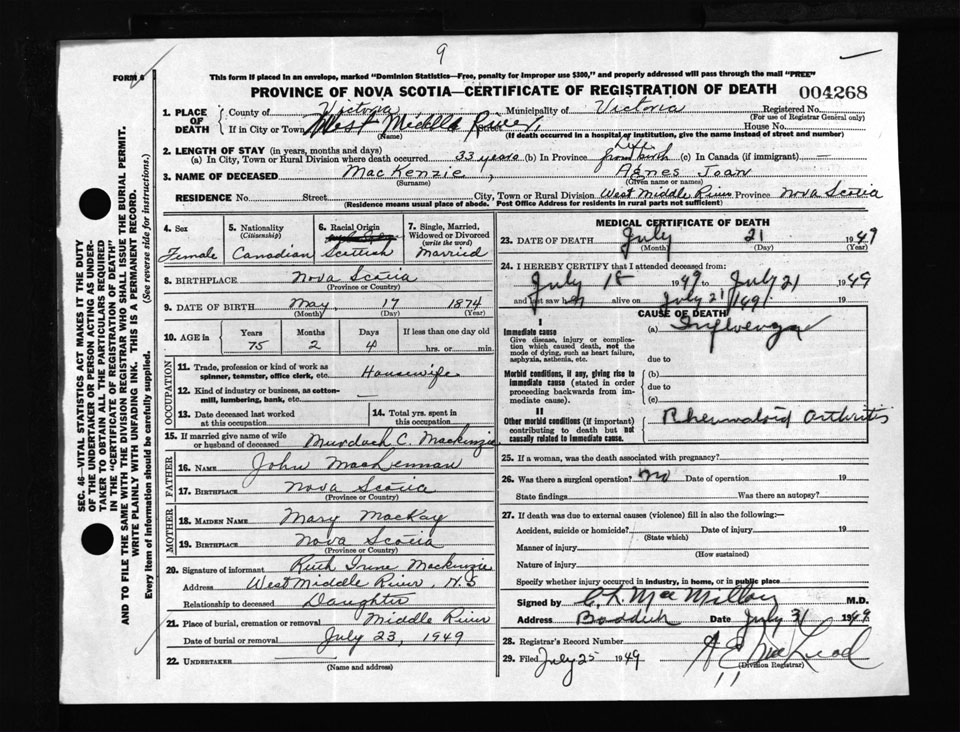 9
FORM 6
This form if placed in an envelope, marked "Dominion Statistics—Free, penalty for improper use $300," and properly addressed will pass through the mail "FREE"
PROVINCE OF NOVA SCOTIA—CERTIFICATE OF REGISTRATION OF DEATH 004268
1. PLACE OF DEATH
County of Victoria Municipality of Victoria Registered No.
(For use of Registrar General only)
If in City or Town West Middle River, Street House No.
(Name) (If death occurred in a hospital or institution, give the name instead of street and number)
2. LENGTH OF STAY (in years, months and days)
(a) In City, Town or Rural Division where death occurred 33 years (b) In Province Life from birth (c) In Canada (if immigrant) —
3. NAME OF DECEASED MacKenzie, Agnes Joan
(Surname) (Given name or names)
RESIDENCE No. Street City, Town or Rural Division West Middle River Province Nova Scotia
(Residence means usual place of abode. Post Office Address for residents in rural parts not sufficient)
4. Sex
Female
5. Nationality (Citizenship)
Canadian
6. Racial Origin
Scottish
7. Single, Married, Widowed or Divorced (write the word)
Married
8. BIRTHPLACE Nova Scotia
(Province or Country)
9. DATE OF BIRTH May 17 1874
(Month) (Day) (Year)
10. AGE in Years Months Days If less than one day old
75 2 4 hrs. or min.
OCCUPATION
11. Trade, profession or kind of work as spinner, teamster, office clerk, etc. Housewife
12. Kind of industry or business, as cotton-mill, lumbering, bank, etc. —
13. Date deceased last worked at this occupation
14. Total yrs. spent in this occupation
15. If married give name of wife or husband of deceased Murdoch C. Mackenzie
FATHER
16. NAME John MacLennan
17. BIRTHPLACE Nova Scotia
(Province or Country)
MOTHER
18. MAIDEN NAME Mary MacKay
19. BIRTHPLACE Nova Scotia
(Province or Country)
20. Signature of informant Ruth Irene Mackenzie
Address West Middle River, N.S
Relationship to deceased Daughter
21. Place of burial, cremation or removal Middle River
Date of burial or removal July 23, 1949
22. UNDERTAKER —
(Name and address)
MEDICAL CERTIFICATE OF DEATH
23. DATE OF DEATH July 21 1949
(Month) (Day) (Year)
24. I HEREBY CERTIFY that I attended deceased from:
July 18 1949 to July 21 1949
and last saw h alive on July 21/49 19
CAUSE OF DEATH
I
Immediate cause (a) Influenza
Give disease, injury or complication which caused death, not the mode of dying, such as heart failure, asphyxia, asthenia, etc.
due to
Morbid conditions, if any, giving rise to immediate cause (stated in order proceeding backwards from immediate cause).
(b)
due to
(c)
II
Other morbid conditions (if important) contributing to death but not causally related to immediate cause.
Rheumatoid Arthritis
25. If a woman, was the death associated with pregnancy?
26. Was there a surgical operation? no Date of operation 19
State findings Was there an autopsy?
27. If death was due to external causes (violence) fill in also the following:—
Accident, suicide or homicide? Date of injury 19
(State which)
Manner of injury
(How sustained)
Nature of injury
Specify whether injury occurred in industry, in home, or in public place
Signed by C. L. MacMillan M.D.
Address Baddeck Date July 21 1949
28. Registrar's Record Number
29. Filed July 25 1949 A E MacLeod
(Division Registrar)
SEC. 46—VITAL STATISTICS ACT MAKES IT THE DUTY
OF THE UNDERTAKER OR PERSON ACTING AS UNDER-
TAKER TO OBTAIN ALL THE PARTICULARS REQUIRED
IN THE "CERTIFICATE OF REGISTRATION OF DEATH"
AND TO FILE THE SAME WITH THE DIVISION REGISTRAR WHO SHALL ISSUE THE BURIAL PERMIT.
WRITE PLAINLY WITH UNFADING INK. THIS IS A PERMANENT RECORD.
Every item of information should be carefully supplied. (See reverse side for instructions.)